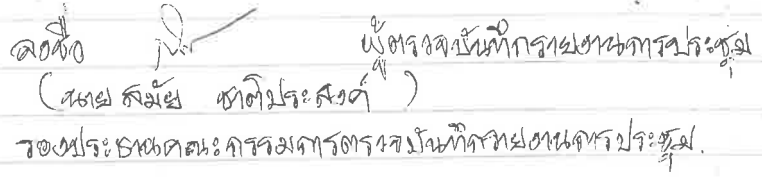 ลงชื่อ ผู้ตรวจบันทึกรายงานการประชุม
(นายสมัย ชาติประสงค์)
รองประธานคณะกรรมการตรวจบันทึกรายงานการประชุม.